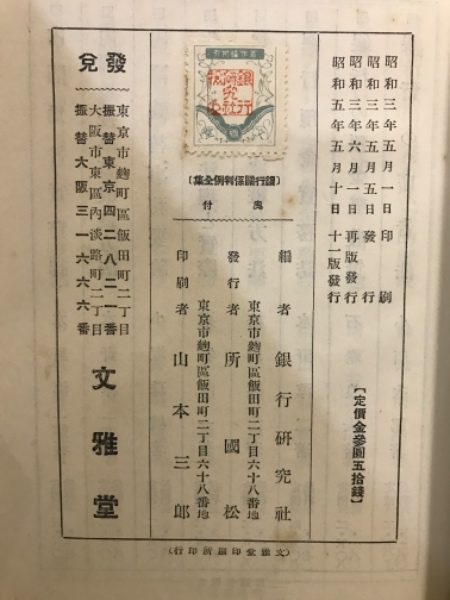 昭和三年五月一日印刷
昭和三年五月五日發行
昭和三年六月一日再版發行
昭和五年五月十日十一版發行
【定價金參圓五拾錢】
【銀行關係判例全集】
奥付
銀行研究社
編者 銀行研究社
東京市麹町區飯田町二丁目六十八番地
發行者 所國松
東京市麹町區飯田町二丁目六十八番地
印刷者 山本三郎
發兌
東京市麹町區飯田町二丁目
振替東京四二八二一番
大阪市東區內淡路町二丁目
振替大阪三一六六六番
文雅堂
(文雅堂印刷所印行)